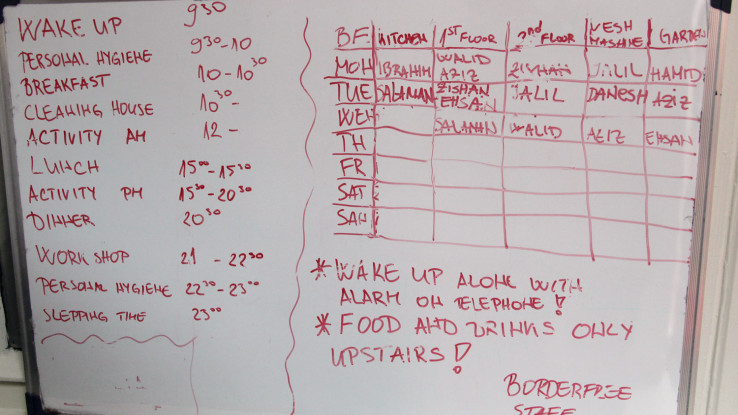 WAKE UP 9³⁰
PERSONAL HYGIENE 9³⁰-10
BREAKFAST 10-10³⁰
CLEANING HOUSE 10³⁰-
ACTIVITY AM 12-
LUNCH 15⁰⁰-15³⁰
ACTIVITY PM 15³⁰-20³⁰
DINNER 20³⁰
WORK SHOP 21 - 22³⁰
PERSONAL HYGIENE 22³⁰-23⁰⁰
SLEPPING TIME 23⁰⁰
BF. KITCHEN 1ST FLOOR 2nd FLOOR GARDEN
MON IBRAHIM WALID AZIZ ZISHAN JALIL HAMID
TUE SALAMAN ZISHAN EHSAN JALIL DANESH AZIZ
WEN SALAMAN WALID AZIZ EHSAN
TH
FR
SAT
SAN
* WAKE UP ALONE WITH
ALARM ON TELEPHONE!
* FOOD AND DRINKS ONLY
UPSTAIRS!
BORDERFREE
STAFF